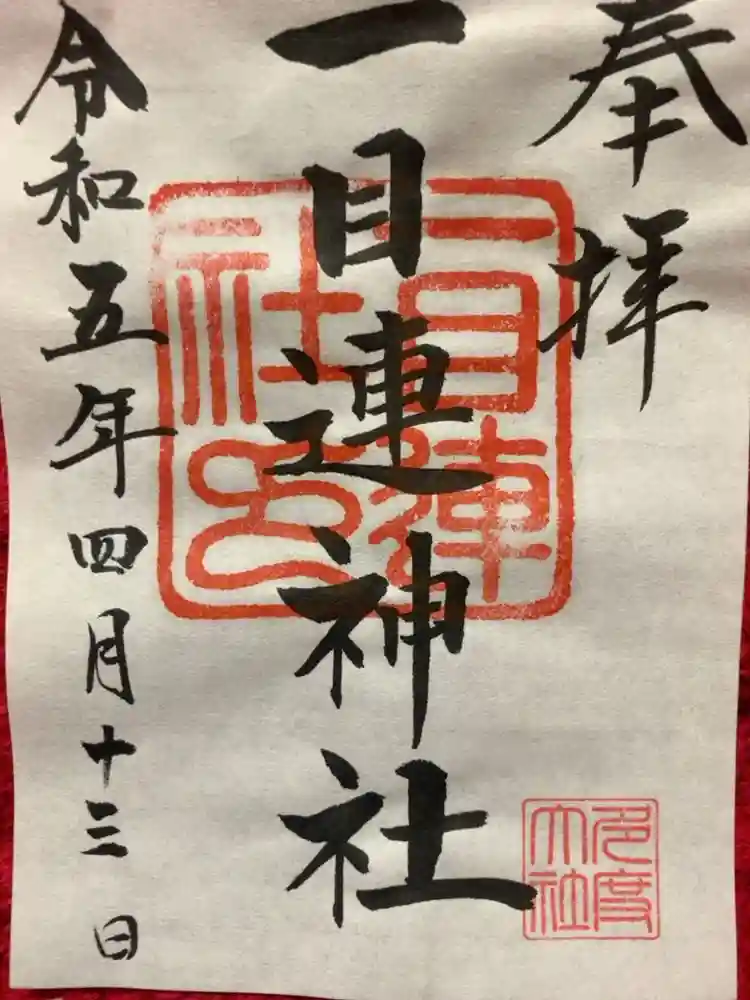 奉拝
一目連神社
令和五年四月十三日
一目連
社印
多度
大社